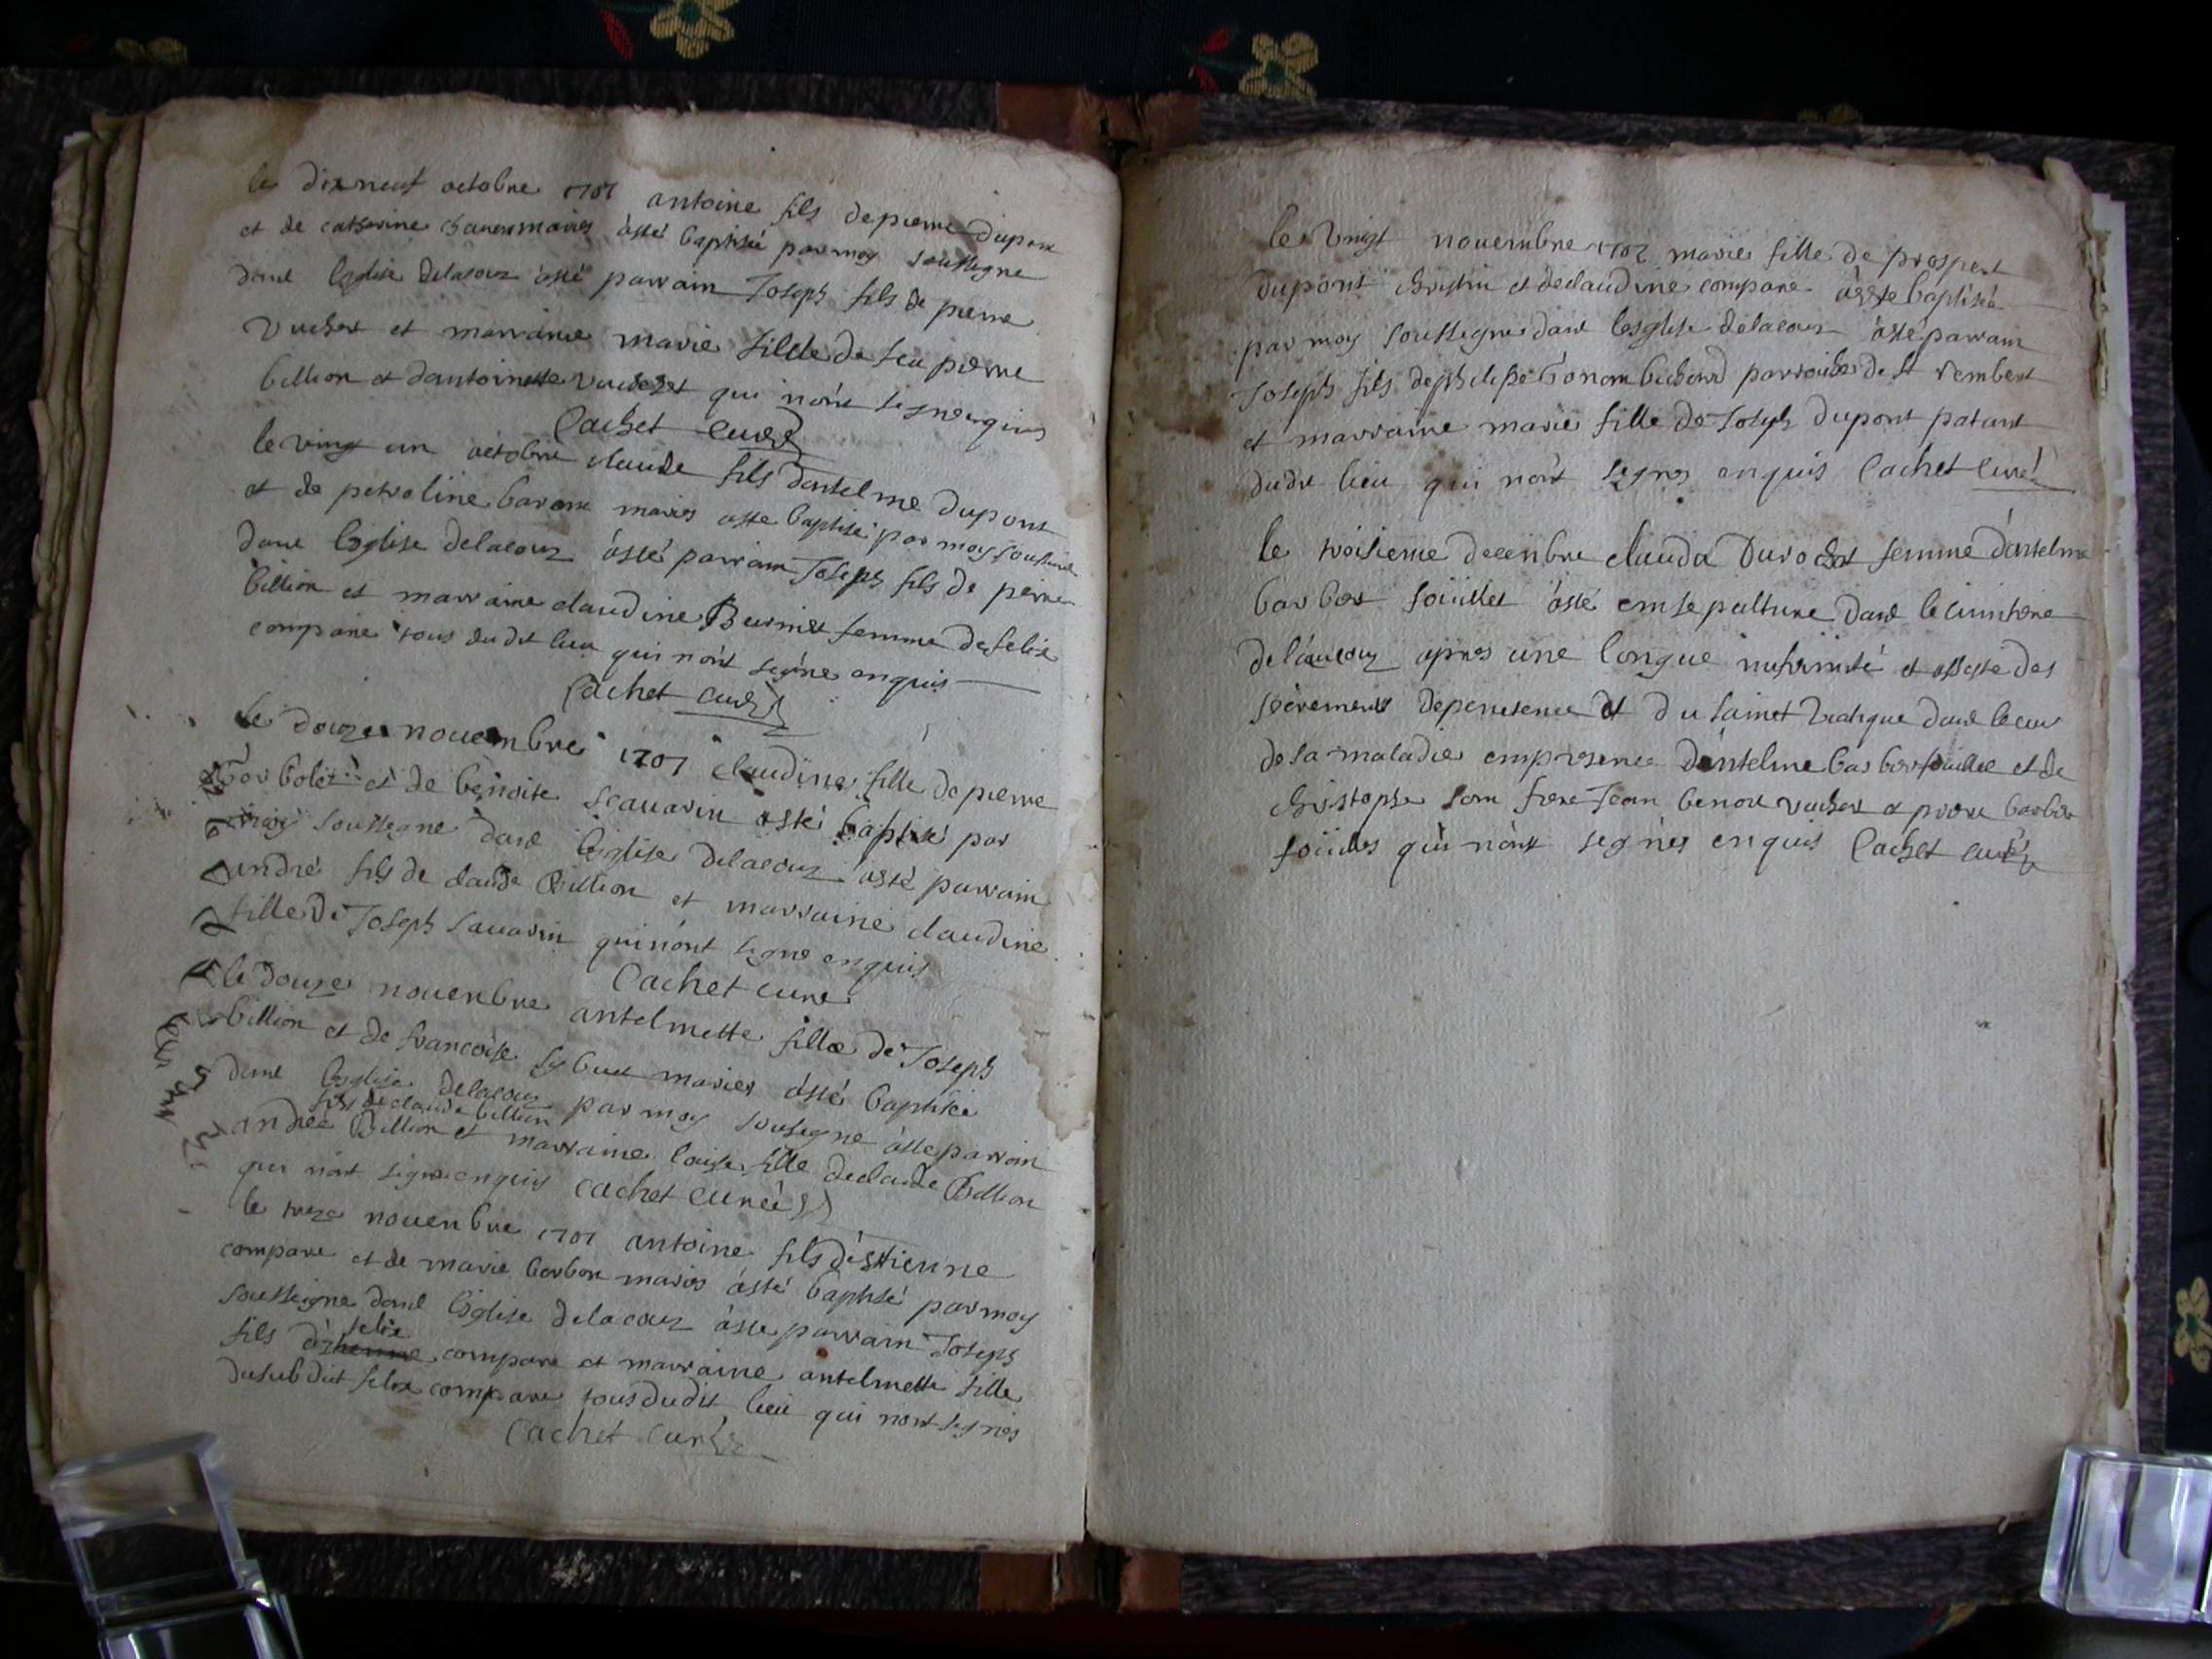 le dixneuf octobre 1701 antoine fils de pierre dupont
et de catherine mariés àsté baptisé par moy soussigne
dans leglise delacoux àsté parrain Joseph fils de pierre
Vuchet et marraine marie fillde de feu pierre
billion et dantoinette vuchet qui nont signe enquis
Cachet curé
le vingt un octobre claude fils dantelme dupont
et de petroline baron mariés asté baptisé par moy soussigne
dans leglise delacoux àsté parrain Joseph fils de pierre
billion et marraine claudine Burnet femme de felix
compare tous du dit lieu qui nont signe enquis
Cachet curé
le douze novembre 1701 claudine fille de pierre
et de benoite scavarin asté baptisé par
moy soussegne dans leglise delacoux àsté parrain
andré fils de claude Billion et marraine claudine
fille de Joseph Savarin qui nont signe enquis
Cachet cure
le douze novenbre antelmette fille de Joseph
billion et de francoise mariés àsté baptisée
dans leglise delacoux par moy sousegne àsté parrain
fils de claude billion
andré Billion et marraine louise fille declaude Billion
qui nont signe enquis cachet curé
le treze novenbre 1701 antoine fils déstienne
compare et de marie barbon mariés àsté baptisé par moy
soussigne dans leglise delacoux àsté parrain Joseph
felix
fils compare et marraine antelmette fille
dusubdit felix compare tous dudit lieu qui nont signés
Cachet curé
le vingt novembre 1701 marie fille de prospert
dupont et declaudine compare àesté baptisée
par moy soussigne dans lesglise delacoux àsté parrain
Joseph fils dephilipe parroisse de st rembert
et marraine marie fille de Joseph dupont patant
dudit lieu qui nont segnes enquis Cachet curé
le troisieme decenbre clauda Durochat femme dantelme
barbet souillet àsté ensepulture dans le cimitiere
delacoux apres une longue infirmité et assisté des
sacremens depenitence et du sainct viatique dans le cour
de sa maladie empresence dantelme barbet souillet et de
christophe son frere Jean benoit vuchet et pierre barbet
souilles qui nont segnés enquis Cachet curé